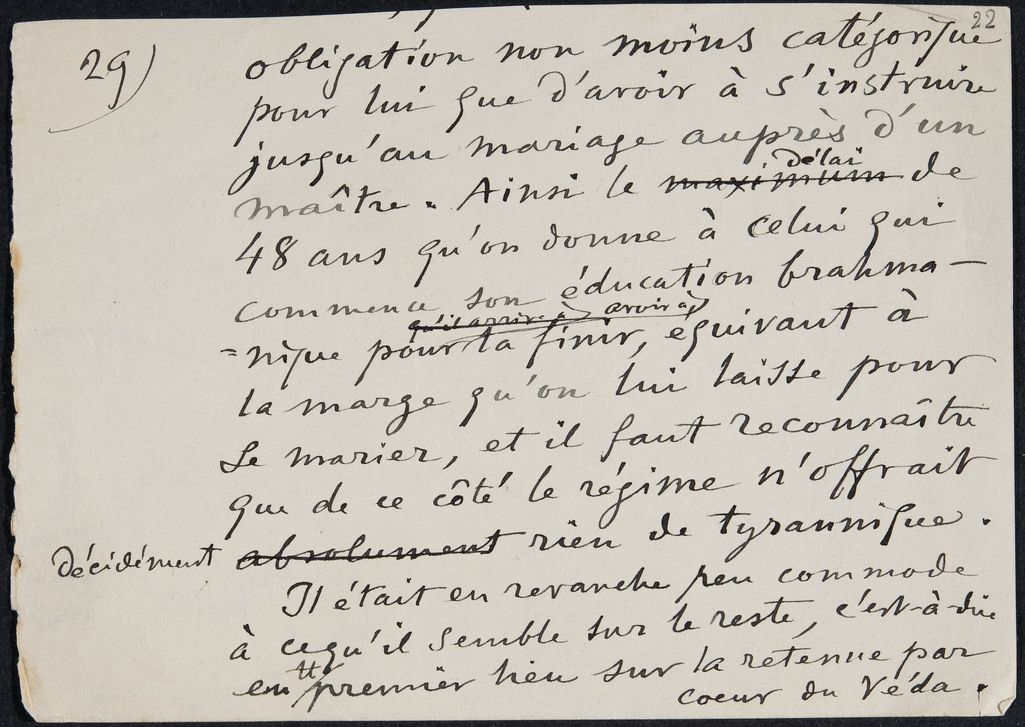 22
29)
obligation non moins catégorique
pour lui que d'avoir à s'instruire
jusqu'au mariage auprès d'un
délai
maître. Ainsi le maximum de
48 ans qu'on donne à celui qui
commence son éducation brahma-
qu'il arrive à avoir à
=nique pour la finir, équivaut à
la marge qu'on lui laisse pour
se marier, et il faut reconnaître
que de ce côté le régime n'offrait
décidément absolument rien de tyrannique.
Il était en revanche peu commode
à ce qu'il semble sur le reste, c'est-à-dire
en premier lieu sur la retenue par
coeur du Véda.